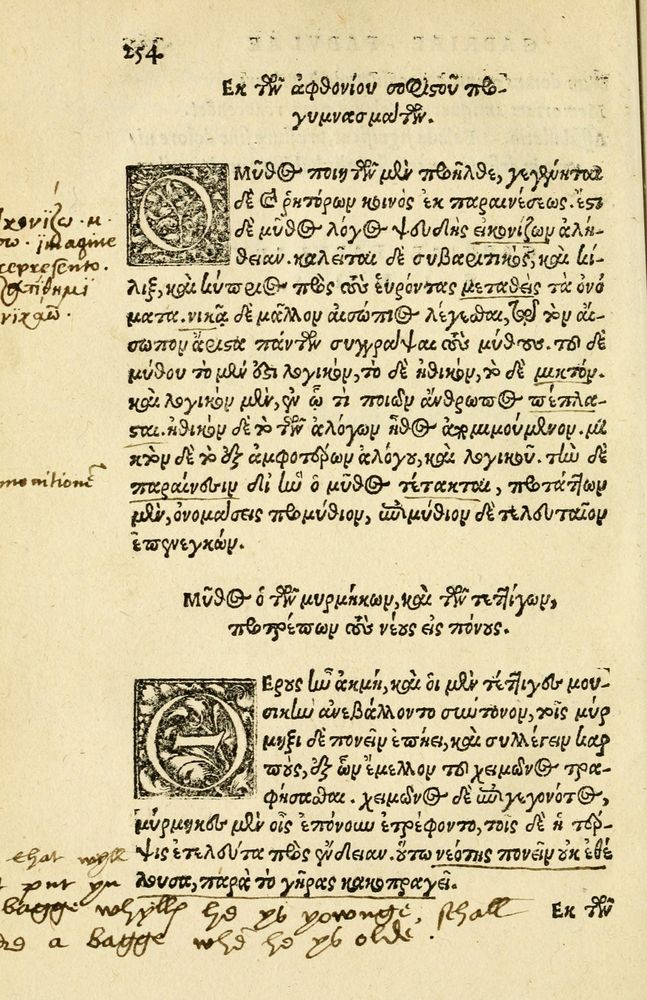 254
Ἐκ τῶν ἀφθονίου σοφιστοῦ προ-
γυμνασμάτων.
Ο Μῦθος ποιητῶν μὲν προῆλθε, γεγένηται
δὲ καὶ ῥητόρων κοινὸς ἐκ παραινέσεως. ἔστι
δὲ μῦθος λόγος ψευδὴς εἰκονίζων ἀλή-
θειαν. καλεῖται δὲ συβαριτικὸς, καὶ κί-
λιξ, καὶ κύπριος πρὸς τοὺς εὑρόντας μεταθεὶς τὰ ὀνό
ματα. νικᾷ δὲ μᾶλλον αἰσώπιος λέγεσθαι, τῷ τὸν αἴ-
σωπον ἄριστα πάντων συγγράψαι τοὺς μύθους. τοῦ δὲ
μύθου τὸ μέν ἐστι λογικὸν, τὸ δὲ ἠθικὸν, τὸ δὲ μικτόν.
καὶ λογικὸν μὲν, ἐν ᾧ τὶ ποιῶν ἄνθρωπος πέπλα-
σται. ἠθικὸν δὲ τὸ τῶν ἀλόγων ἦθος ἀπομιμούμενον. μι
κτὸν δὲ τὸ ἐξ ἀμφοτέρων ἀλόγου, καὶ λογικοῦ. τὴν δὲ
παραίνεσιν δι' ἣν ὁ μῦθος τέτακται, προτάττων
μὲν, ὀνομάσεις προμύθιον, ἐπιμύθιον δὲ τελευταῖον
ἐπενεγκών.
Μῦθος ὁ τῶν μυρμήκων, καὶ τῶν τεττίγων,
προτρέπων τοὺς νέους εἰς πόνους.
Θ Έρους ἦν ἀκμὴ, καὶ οἱ μὲν τέττιγες μου-
σικὴν ἀνεβάλλοντο σύντονον, τοῖς μύρ
μηξι δὲ πονεῖν ἐπῄει, καὶ συλλέγειν καρ
ποὺς, ἐξ ὧν ἔμελλον τοῦ χειμῶνος τρα-
φήσεσθαι. χειμῶνος δὲ ἐπιγεγονότος,
μύρμηκες μὲν οἷς ἐπόνουν ἐτρέφοντο, τοῖς δὲ ἡ τέρ-
ψις ἐτελεύτα πρὸς ἔνδειαν. οὕτω νεότης πονεῖν οὐκ ἐθέ
λουσα, παρὰ τὸ γῆρας κακοπραγεῖ.
Ἐκ τῶν
imagine
represento.
monitionē
that wyll
put yn
bagge whyll he ys yownge, shall
a bagge whē he ys olde.